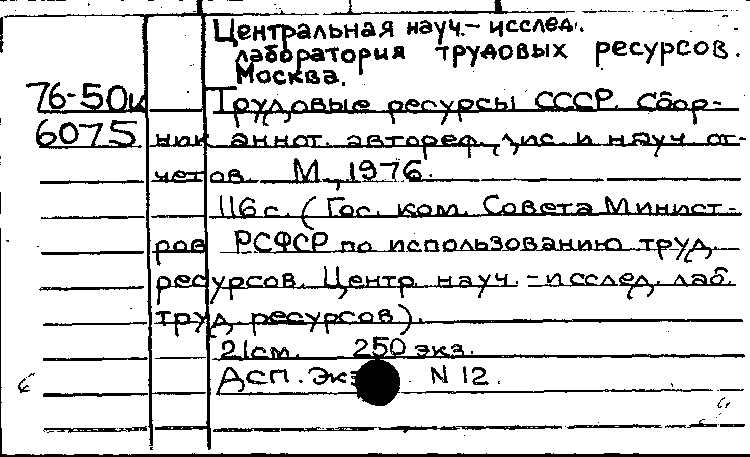 Центральная науч.-исслед.
лаборатория трудовых ресурсов.
Москва.
76-50и Трудовые ресурсы СССР. Сбор-
6075 ник аннот. автореф. дис. и науч. от-
четов. М., 1976.
116 с. (Гос. ком. Совета Минист-
ров РСФСР по использованию труд.
ресурсов. Центр. науч.-исслед. лаб.
труд. ресурсов).
21см. 250 экз.
ДСП. Экз. N 12.